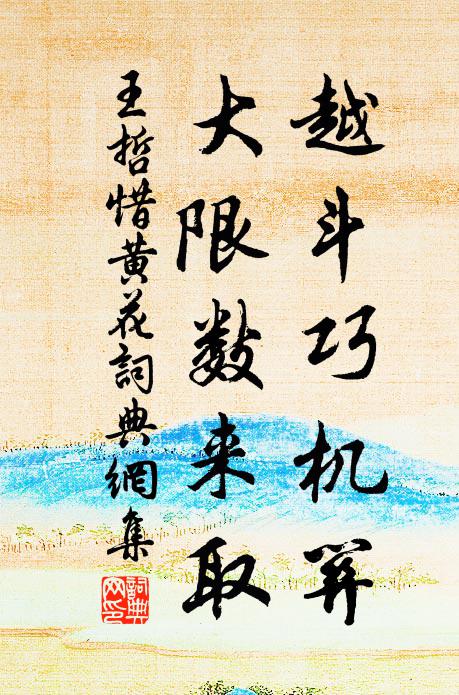 越斗巧机关
大限数来取
王哲惜黄花詞典網集